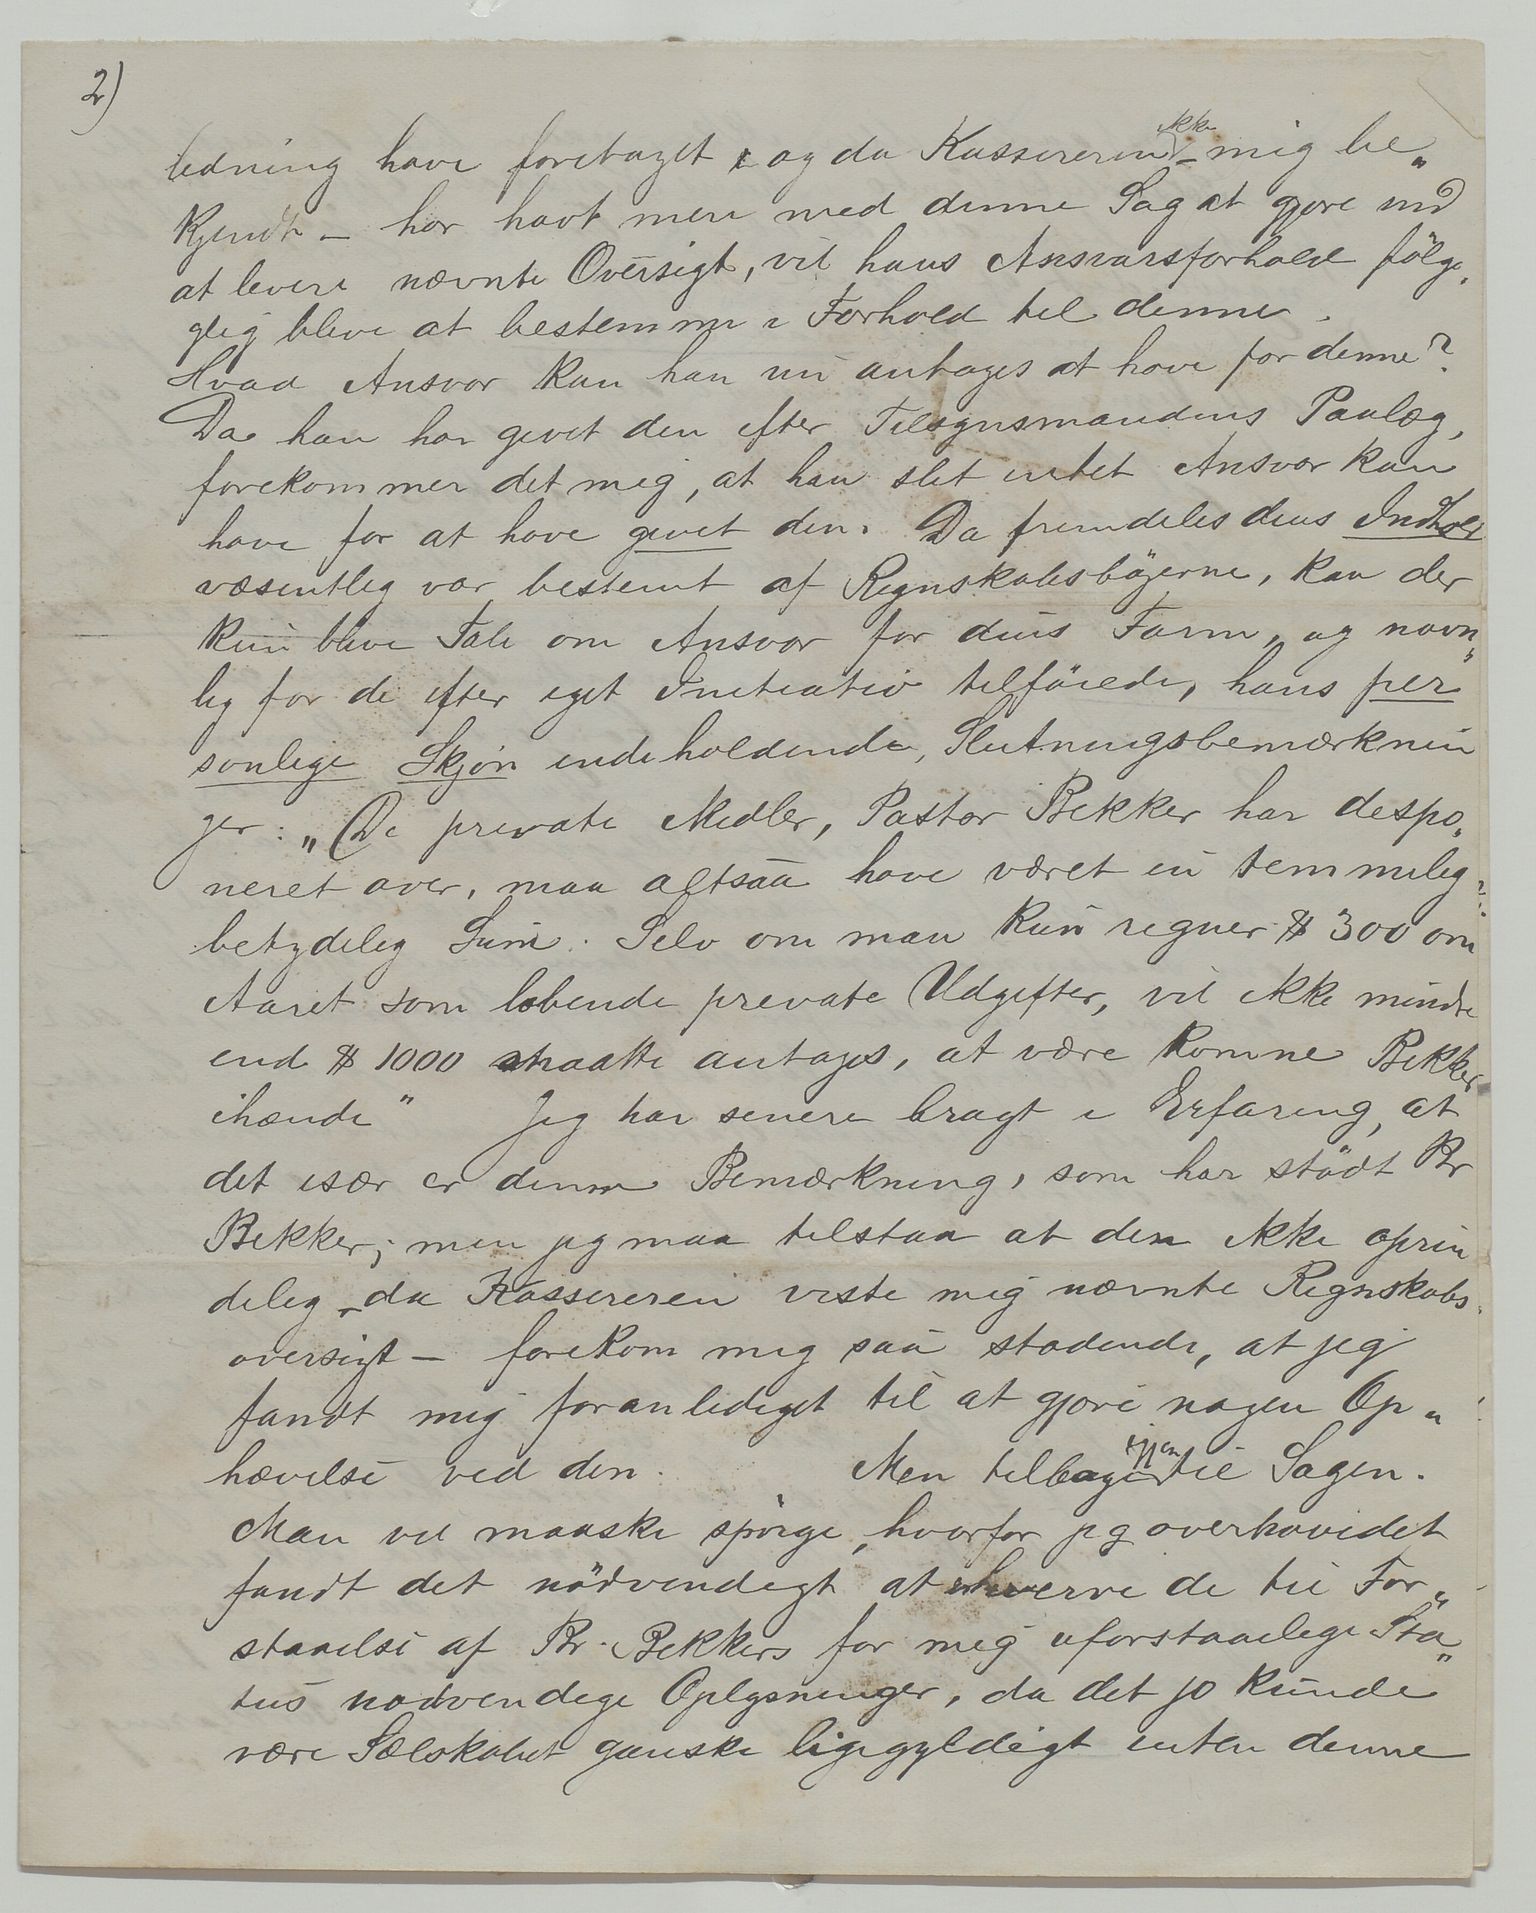 2)
ledning have foretaget og da Kassereren ikke – mig be„
kjendt – har havt mere med denne Sag at gjøre end
at levere nævnte Oversigt, vil hans Ansvarsforhold fölge„
glig blive at bestemme i Forhold til denne.
Hvad Ansvar kan han nu antages at have for denne?
Da han har givet den efter Tilsynsmandens Paalæg,
forekommer det mig, at han slet intet Ansvar kan
have for at have givet den. Da fremdeles dens Indhold
væsentlig var bestemt af Regnskabsbøgerne, kan der
kun blive Tale om Ansvar for dens Form, og navn„
lig for de efter eget Initiativ tilföiede, hans per
sonlige Skjön indeholdende, Slutningsbemærknin
ger: „De private Midler, Pastor Bekker har dispo„
neret over, maa altsaa have været en temmelig
betydelig Sum. Selv om man kun regner $ 300 om
Aaret som løbende private Udgifter, vil ikke mindre
end $ 1000 maatte antages, at være komne Bekker
ihænde" Jeg har senere bragt i Erfaring, at
det især er denne Bemærkning, som har stödt Br
Bekker; men jeg maa tilstaa at den ikke oprin
delig – da Kassereren viste mig nævnte Regnskabs„
oversigt – forekom mig saa stødende, at jeg
fandt mig foranlediget til at gjøre nogen Op„
hævelse ved den. Men tilbage igjen til Sagen.
Man vil maaske spörge, hvorfor jeg overhovedet
fandt det nödvendigt at erhverve de til For„
staaelse af Br. Bekkers for mig uforstaaelige Sta„
tus nødvendige Oplysninger, da det jo kunde
være Selskabet ganske ligegyldigt enten denne